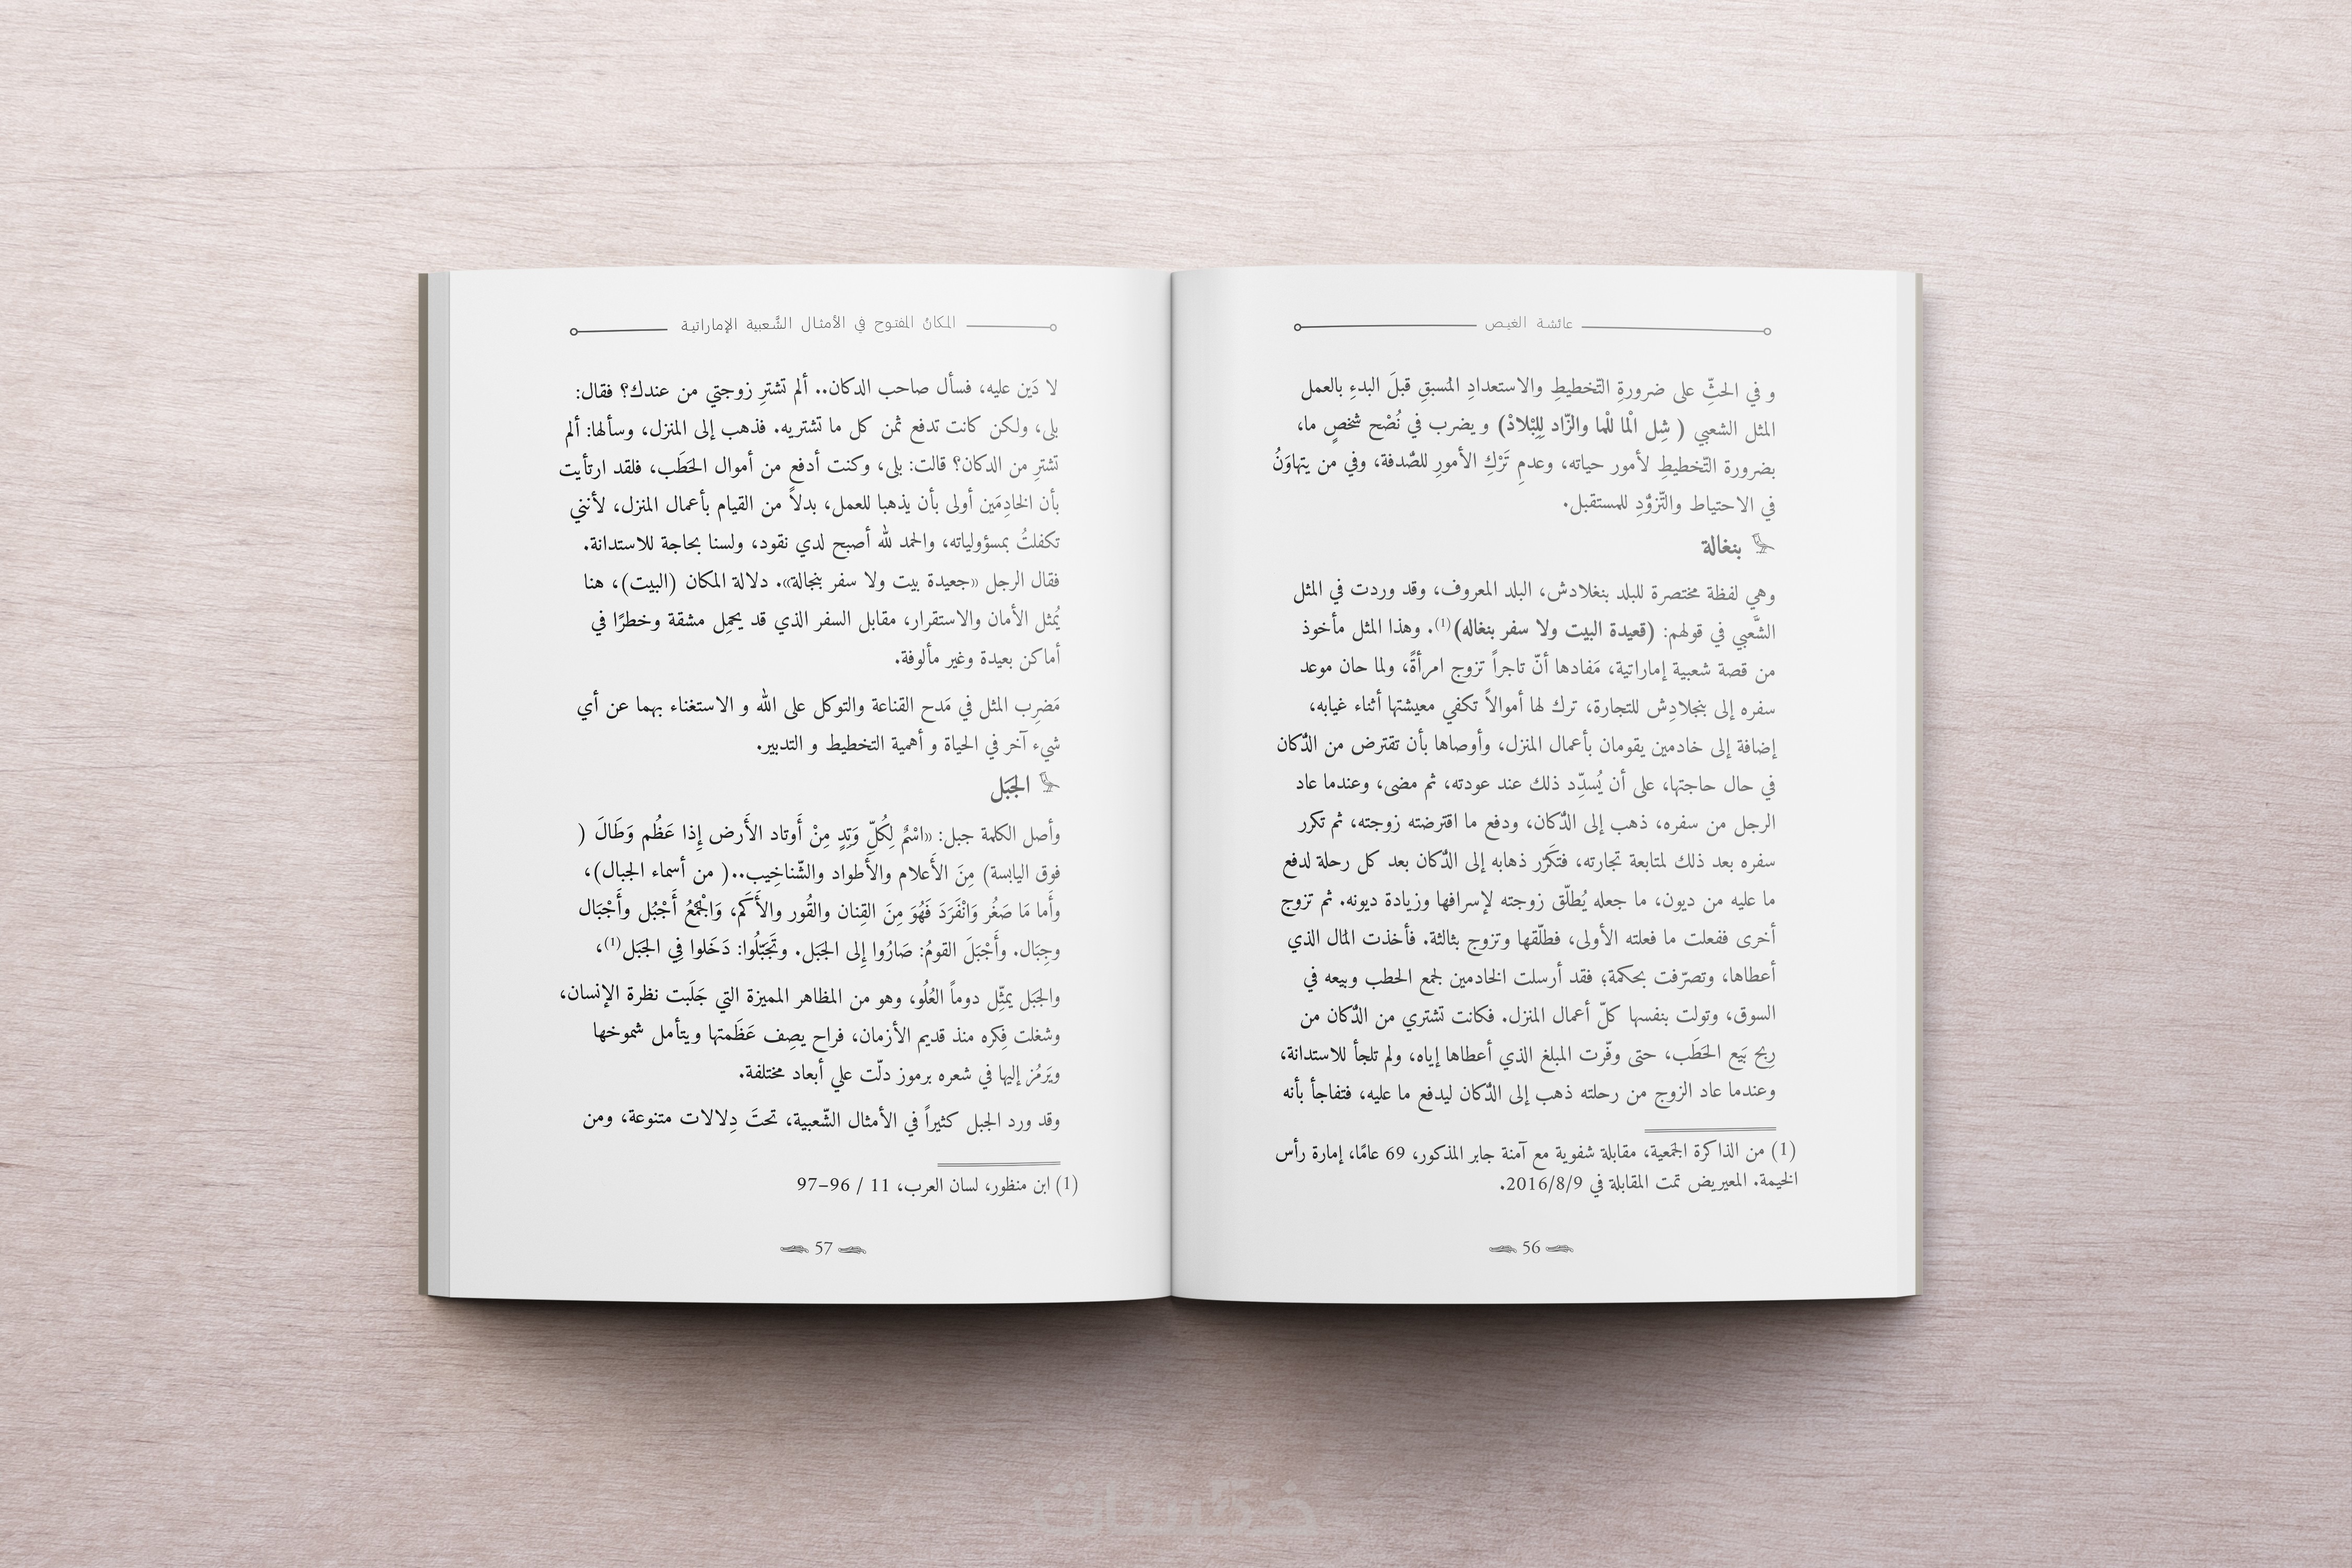 عائشة الغيص
و في الحثِّ على ضرورةِ التّخطيطِ والاستعدادِ المُسبقِ قبلَ البدءِ بالعمل
المثل الشعبي ( شِل الْما للْما والزّاد لِلِبْلادْ) و يضرب في نُصْح شخصٍ ما،
بضرورة التّخطيطِ لأمور حياته، وعدمِ تَرْكِ الأمورِ للصّدفة، وفي من يتهاوَنُ
في الاحتياط والتّزوّدِ للمستقبل.
بنغالة
وهي لفظة مختصرة للبلد بنغلادش، البلد المعروف، وقد وردت في المثل
الشّعبي في قولهم: (قعيدة البيت ولا سفر بنغاله)(1). وهذا المثل مأخوذ
من قصة شعبية إماراتية، مَفادها أنّ تاجراً تزوج امرأةً، ولما حان موعد
سفره إلى بنجلادِش للتجارة، ترك لها أموالاً تكفي معيشتها أثناء غيابه،
إضافة إلى خادمين يقومان بأعمال المنزل، وأوصاها بأن تقترض من الدّكان
في حال حاجتها، على أن يُسدِّد ذلك عند عودته، ثم مضى، وعندما عاد
الرجل من سفره، ذهب إلى الدّكان، ودفع ما اقترضته زوجته، ثم تكرر
سفره بعد ذلك لمتابعة تجارته، فتكرّر ذهابه إلى الدّكان بعد كل رحلة لدفع
ما عليه من ديون، ما جعله يُطلّق زوجته لإسرافها وزيادة ديونه. ثم تزوج
أخرى ففعلت ما فعلته الأولى، فطلّقها وتزوج بثالثة. فأخذت المال الذي
أعطاها، وتصرّفت بحكمة؛ فقد أرسلت الخادمين لجمع الحطب وبيعه في
السوق، وتولت بنفسها كلّ أعمال المنزل. فكانت تشتري من الدّكان من
رِبح بَيع الحَطَب، حتى وفّرت المبلغ الذي أعطاها إياه، ولم تلجأ للاستدانة،
وعندما عاد الزوج من رحلته ذهب إلى الدّكان ليدفع ما عليه، فتفاجأ بأنه
(1) من الذاكرة الجمعية، مقابلة شفوية مع آمنة جابر المذكور، 69 عامًا، إمارة رأس
الخيمة. المعيريض تمت المقابلة في 2016/8/9.
56
المكانُ المفتوح في الأمثال الشّعبية الإماراتية
لا دَين عليه، فسأل صاحب الدكان.. ألم تشترِ زوجتي من عندك؟ فقال:
بلى، ولكن كانت تدفع ثمن كل ما تشتريه. فذهب إلى المنزل، وسألها: ألم
تشترِ من الدكان؟ قالت: بلى، وكنت أدفع من أموال الحَطَب، فلقد ارتأيت
بأن الخادِمَين أولى بأن يذهبا للعمل، بدلاً من القيام بأعمال المنزل، لأنني
تكفلتُ بمسؤولياته، والحمد لله أصبح لدي نقود، ولسنا بحاجة للاستدانة.
فقال الرجل «جعيدة بيت ولا سفر بنجالة». دلالة المكان (البيت)، هنا
يُمثل الأمان والاستقرار، مقابل السفر الذي قد يحمِل مشقة وخطرًا في
أماكن بعيدة وغير مألوفة.
مَضرِب المثل في مَدح القناعة والتوكل على الله و الاستغناء بهما عن أي
شيء آخر في الحياة و أهمية التخطيط و التدبير.
الجَبَل
وأصل الكلمة جبل: «اسْمٌ لِكُلِّ وَتِدٍ مِنْ أَوتاد الأَرض إِذا عَظُم وَطَالَ (
فوق اليابسة) مِنَ الأَعلام والأَطواد والشّناخِيب..( من أسماء الجبال)،
وأَما مَا صَغُر وَانْفَرَدَ فَهُوَ مِنَ القِنان والقُور والأَكَم، وَالْجَمْعُ أَجْبُل وأَجْبَال
وجِبَال. وأَجْبَلَ القومُ: صَارُوا إِلى الجَبَل. وتَجَبّلُوا: دَخَلوا فِي الجَبَل(1)،
والجَبَل يمثِّل دوماً العُلُو، وهو من المظاهر المميزة التي جَلَبت نظرة الإنسان،
وشغلت فِكره منذ قديم الأزمان، فراح يصِف عَظَمتها ويتأمل شموخها
ويَرمُز إليها في شعره برموز دلّت علي أبعاد مختلفة.
وقد ورد الجبل كثيراً في الأمثال الشّعبية، تحتَ دِلالات متنوعة، ومن
(1) ابن منظور، لسان العرب، 11 / 96–97
57
خمسات